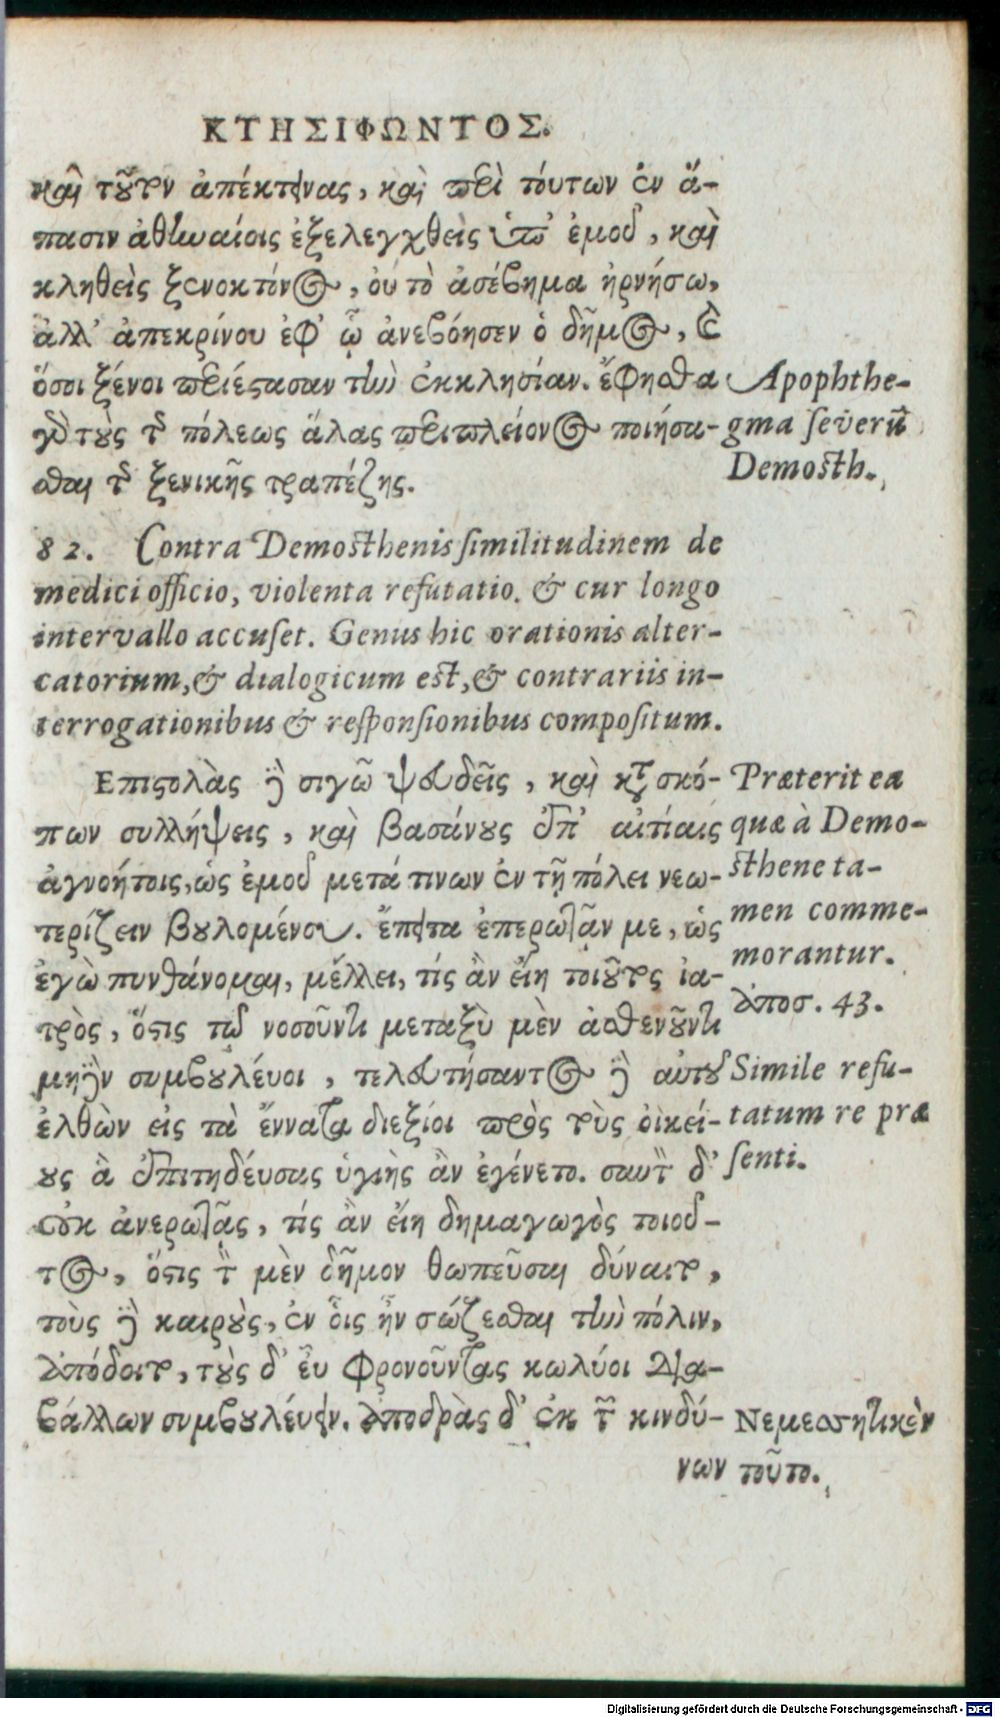 ΚΤΗΣΙΦΩΝΤΟΣ.
καὶ τοῦτον ἀπέκτεινας, καὶ περὶ τούτων ἐν ἅ-
πασιν ἀθηναίοις ἐξελεγχθεὶς ὑπ' ἐμοῦ, καὶ
κληθεὶς ξενοκτόνος, οὐ τὸ ἀσέβημα ἠρνήσω,
ἀλλ' ἀπεκρίνου ἐφ' ᾧ ἀνεβόησεν ὁ δῆμος, καὶ
ὅσοι ξένοι περιέστασαν τὴν ἐκκλησίαν. ἔφησθα
γὰρ τοὺς τῆς πόλεως ἅλας περὶ πλείονος ποιήσα-
σθαι τῆς ξενικῆς τραπέζης.
Apophthe-
gma severū
Demosth.
82. Contra Demosthenis similitudinem de
medici officio, violenta refutatio. & cur longo
intervallo accuset. Genus hic orationis alter-
catorium, & dialogicum est, & contrariis in-
terrogationibus & responsionibus compositum.
Επιστολὰς δὲ σιγῶ ψευδεῖς, καὶ κατασκό-
πων συλλήψεις, καὶ βασάνους ἐπ' αἰτίαις
ἀγνοήτοις, ὡς ἐμοῦ μετά τινων ἐν τῇ πόλει νεω-
τερίζειν βουλομένου. ἔπειτα ἐπερωτᾶν με, ὡς
ἐγὼ πυνθάνομαι, μέλλει, τίς ἂν εἴη τοιοῦτος ἰα-
τρὸς, ὅστις τῷ νοσοῦντι μεταξὺ μὲν ἀσθενοῦντι
μηδὲν συμβουλέυοι, τελευτήσαντος δὲ αὐτοῦ
ἐλθὼν εἰς τὰ ἔννατα διεξίοι πρὸς τοὺς οἰκεί-
ους ἃ ἐπιτηδέυσας ὑγιὴς ἂν ἐγένετο. σαυτὸν δ'
οὐκ ἀνερωτᾷς, τίς ἂν εἴη δημαγωγὸς τοιοῦ-
τος, ὅστις τὸν μὲν δῆμον θωπεῦσαι δύναιτο,
τοὺς δὲ καιροὺς, ἐν οἷς ἦν σώζεσθαι τὴν πόλιν,
ἀπόδοιτο, τοὺς δ' εὖ φρονοῦντας κωλύοι δια-
βάλλων συμβουλέυειν. ἀποδρὰς δ' ἐκ τῶν κινδύ-
νων
Præterit ea
quæ à Demo-
sthene ta-
men comme-
morantur.
ἀποσ. 43.
Simile refu-
tatum re præ
senti.
Νεμεσητικὸν
τοῦτο.
Digitalisierung gefördert durch die Deutsche Forschungsgemeinschaft - DFG